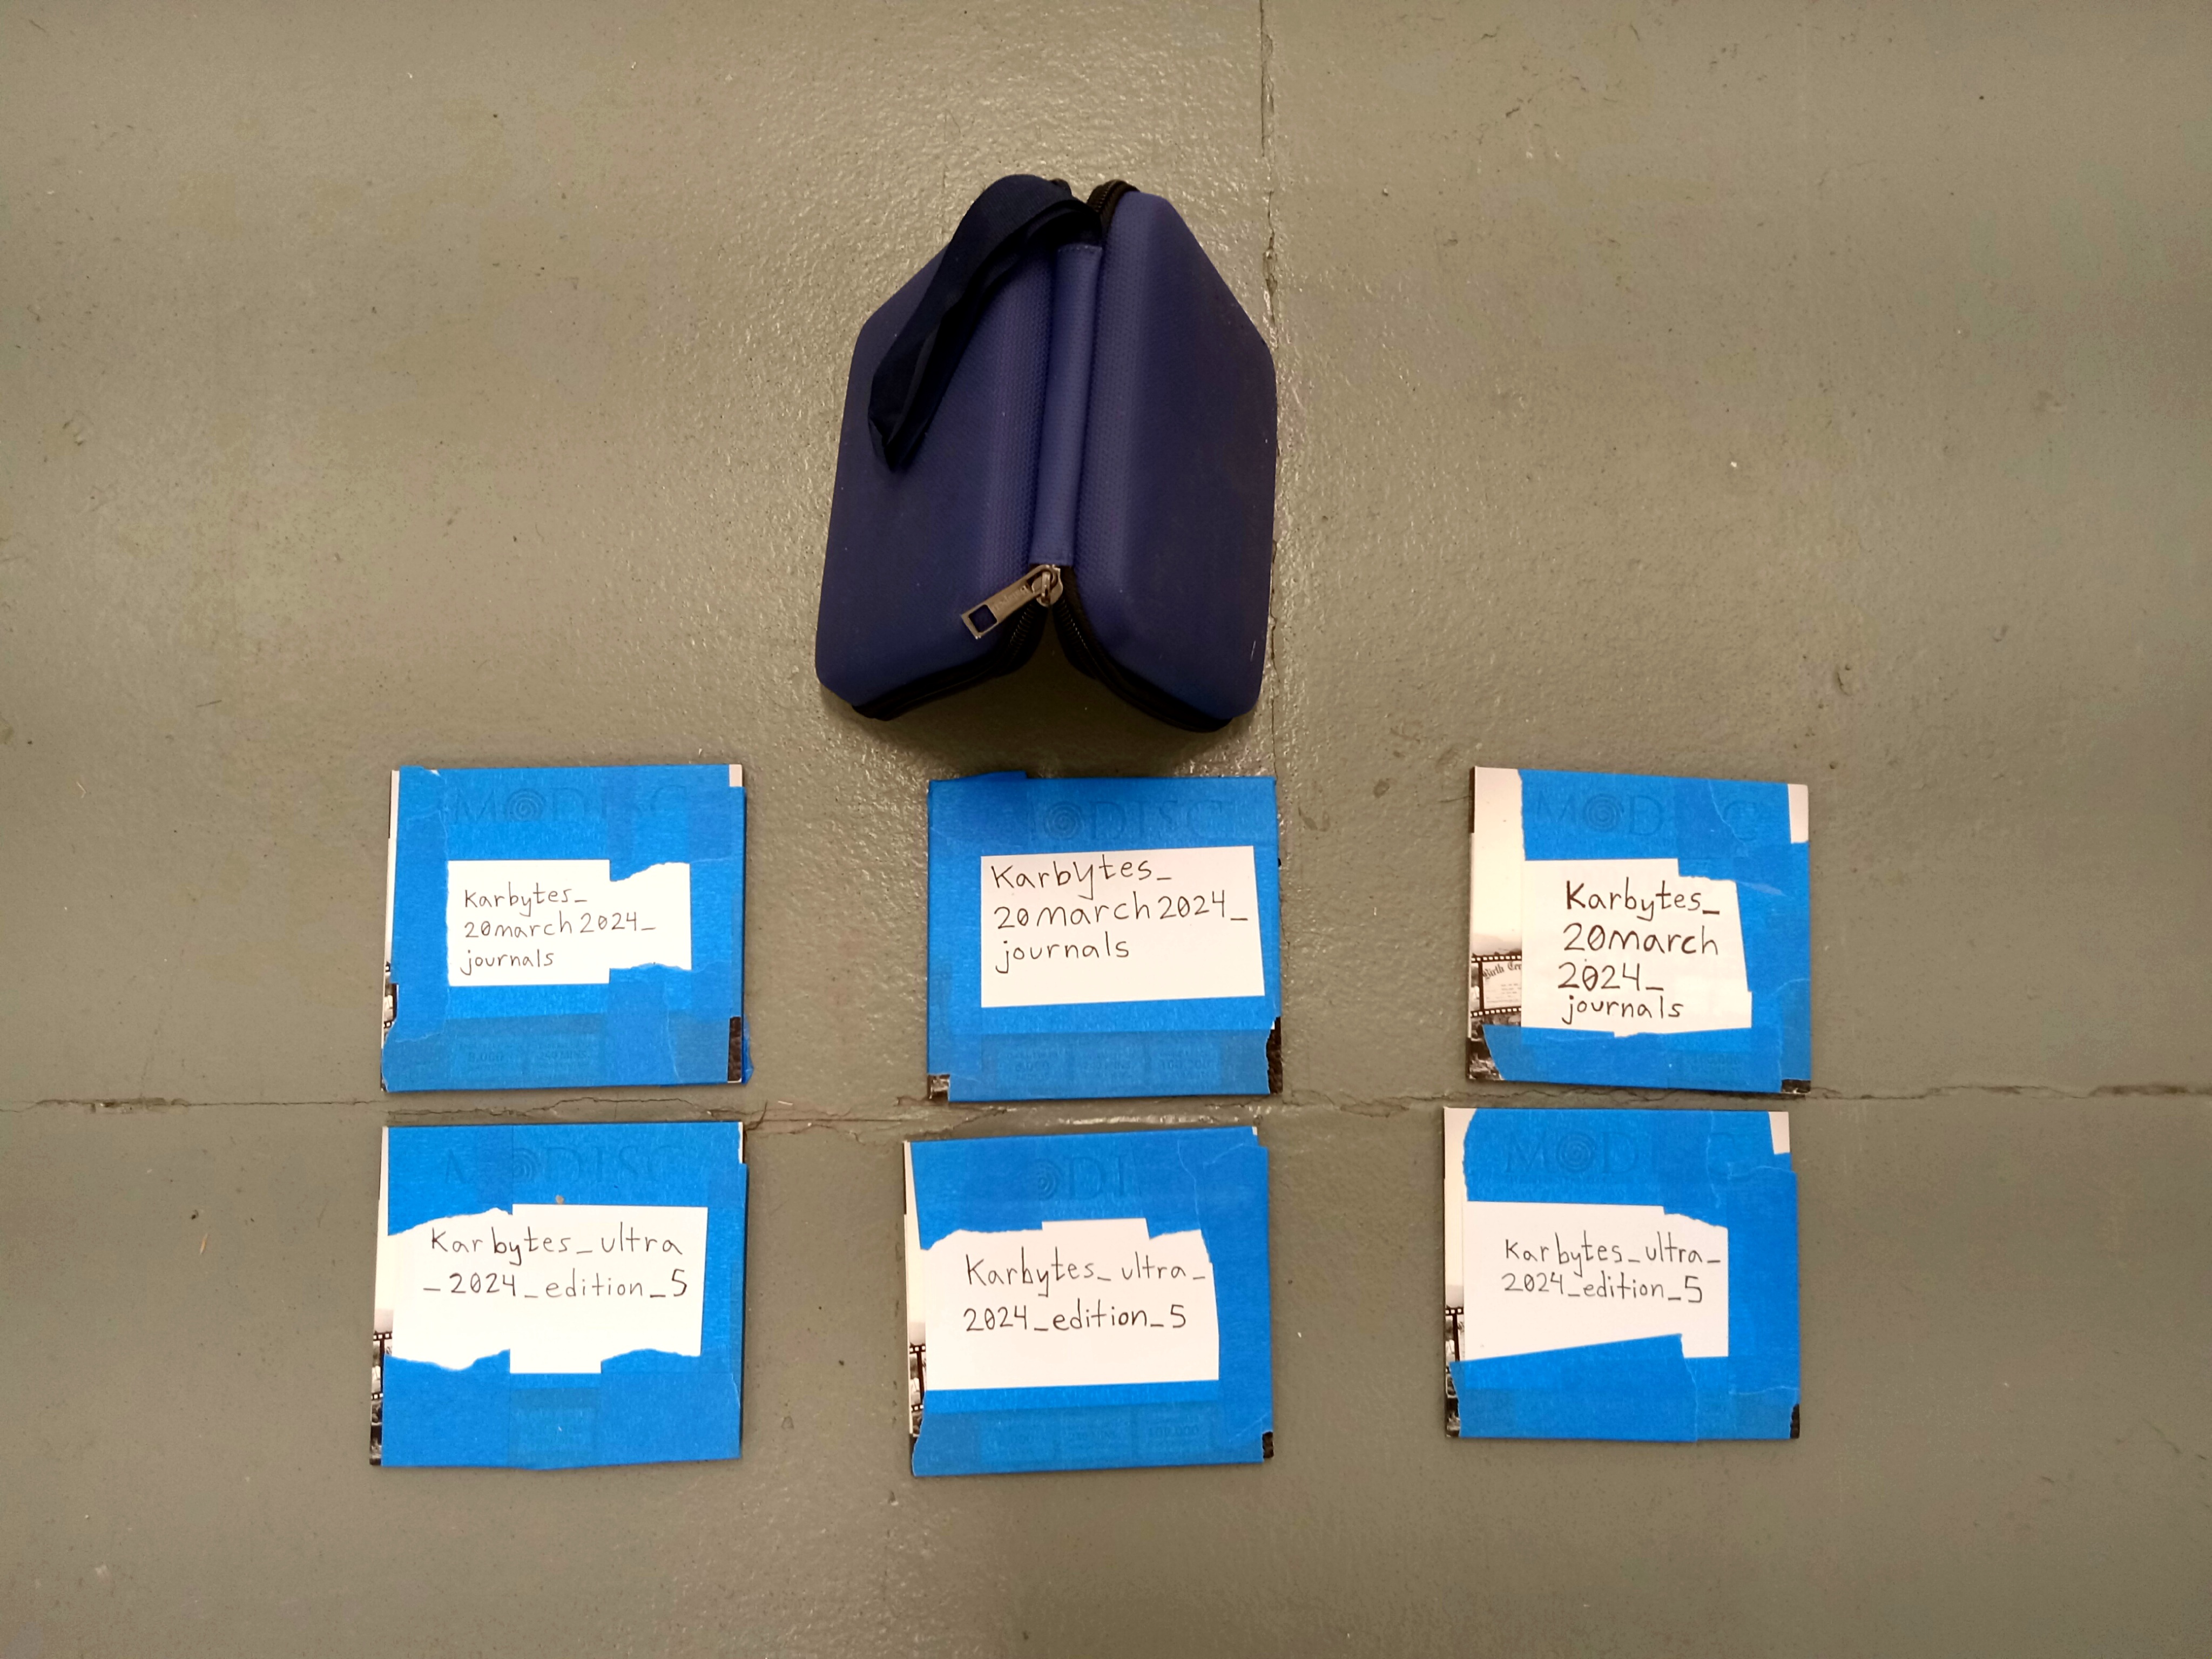 MODISC
Karbytes_
20march2024_
journals
DISC
Karbytes_
20march2024_
journals
MOD
C
Karbytes_
20march
2024_
journals
Birth Cer
MODISC
Karbytes_ultra
_2024_edition_5
ODI
Karbytes_ultra_
2024_edition_5
MOD
C
Karbytes_ultra_
2024_edition_5